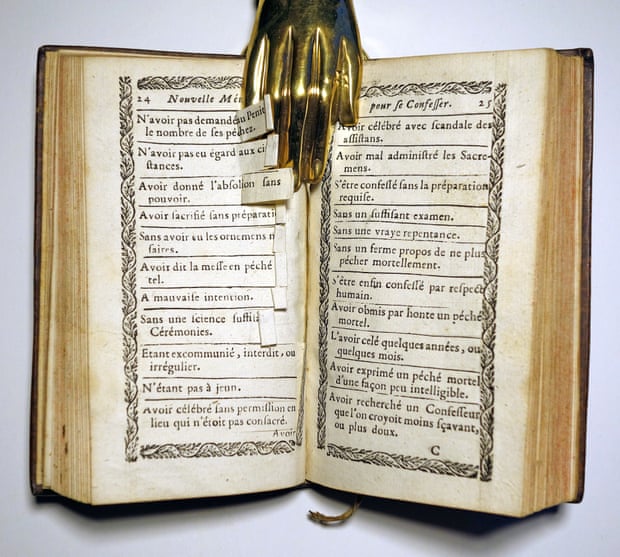 24 Nouvelle Mé
N'avoir pas demandé au Péni
le nombre de ses péchez.
N'avoir pas eu égard aux ci
stances.
Avoir donné l'absolution sans
pouvoir.
Avoir sacrifié sans préparati
Sans avoir eu les ornemens n
saires.
Avoit dit la messe en péché
tel.
A mauvaise intention.
Sans une science suffisa
Cérémonies.
Etant excommunié, interdit, ou
irrégulier.
N'étant pas à jeun.
Avoir célébré sans permission en
lieu qui n'étoit pas consacré.
Avoir
pour se Confesser. 25
Avoir célébré avec scandale des
assistans.
Avoir mal administré les Sacre-
mens.
S'être confessé sans la préparation
requise.
Sans un suffisant examen.
Sans une vraye repentance.
Sans un ferme propos de ne plus
pécher mortellement.
S'être enfin confessé par respect
humain.
Avoir obmis par honte un péché
mortel.
L'avoir celé quelques années, ou
quelques mois.
Avoir exprimé un péché mortel
d'une façon peu intelligible.
Avoir recherché un Confesseur
que l'on croyoit moins sçavant,
ou plus doux.
C